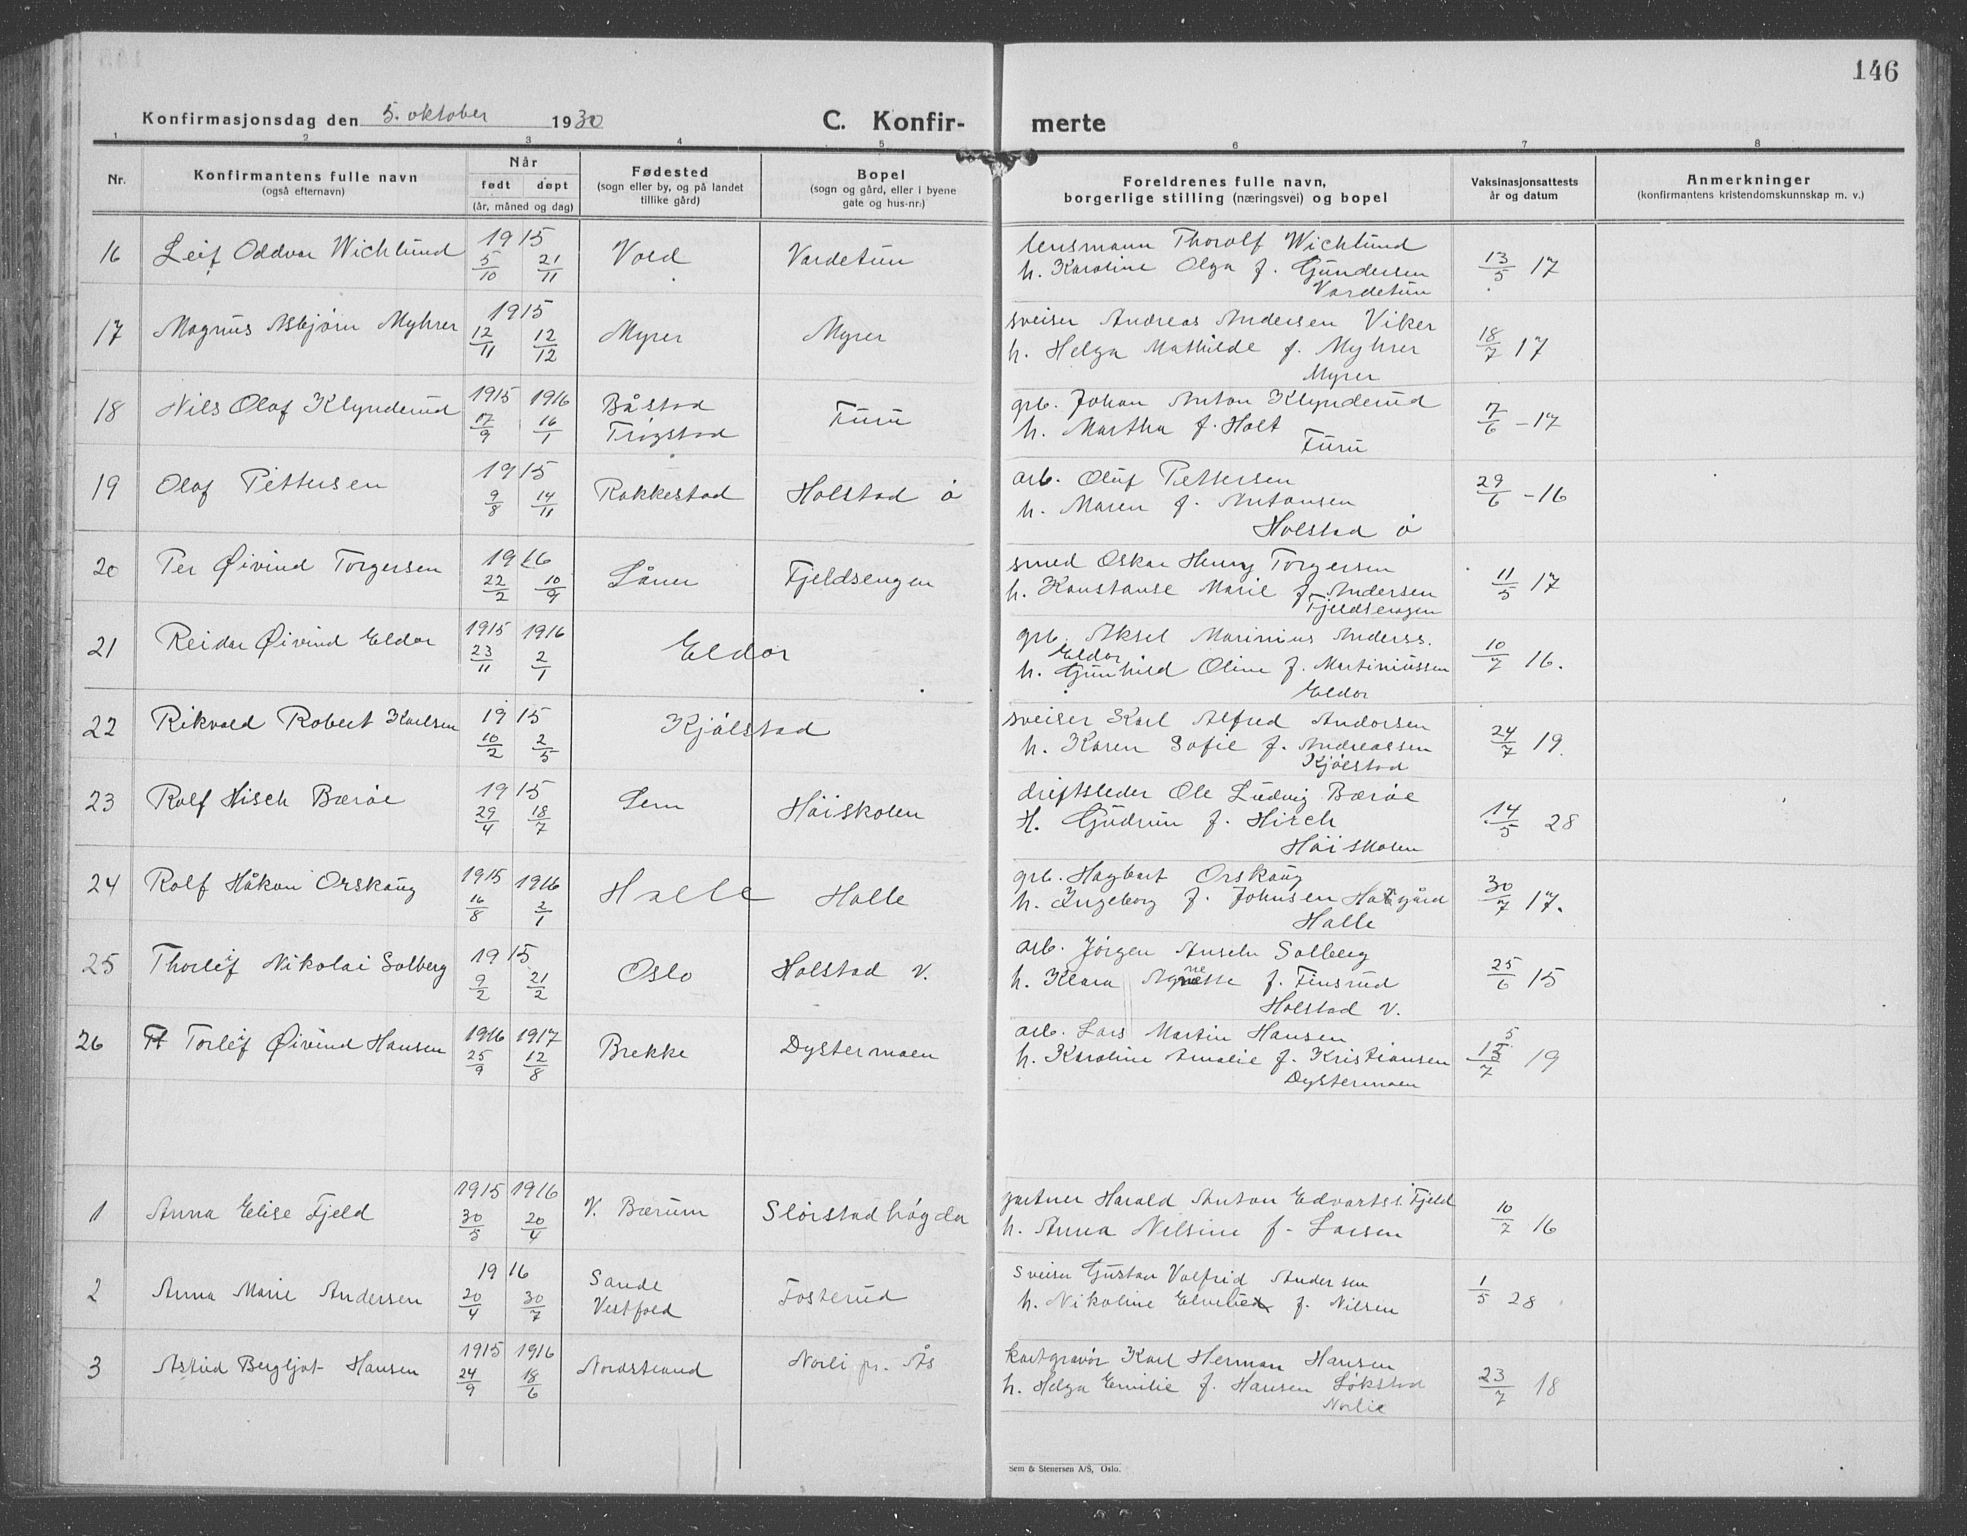 146
Konfirmasjonsdag den 5. oktober 1930 C. Konfir- merte
1 2 3 4 5 6 7 8
Nr.
Konfirmantens fulle navn
(også efternavn)
Når
født døpt
(år, måned og dag)
Fødested
(sogn eller by, og på landet
tillike gård)
Bopel
(sogn og gård, eller i byene
gate og hus-nr.)
Foreldrenes fulle navn,
borgerlige stilling (næringsvei) og bopel
Vaksinasjonsattests
år og datum
Anmerkninger
(konfirmantens kristendomskunnskap m. v.)
16 Leif Oddvar Wichlund 1915 5/10 21/11 Vold Vardetun
lensmann Thoralf Wichlund
h. Karoline Olga f. Gundersen
Vardetun
13/5 17
17 Magnus Asbjørn Myhrer 1915 12/11 12/12 Myrer Myrer
sveiser Andreas Andersen Viker
h. Helga Mathilde f. Myhrer
Myrer
18/7 17
18 Nils Olaf Klynderud 1915 17/9 1916 16/1 Båstad Trøgstad Furu
grb. Johan Anton Klynderud
h. Martha f. Holt
Furu
7/6 - 17
19 Olaf Pettersen 1915 9/8 14/11 Rakkestad Holstad ø
arb. Oluf Pettersen
h. Maren f. Antonsen
Holstad ø
29/6 - 16
20 Per Øivind Torgersen 1916 22/2 10/9 Låner Fjeldsengen
smed Oskar Henry Torgersen
h. Konstanse Marie f. Andersen
Fjeldsengen
11/5 17
21 Reidar Øivind Eldor 1915 23/11 1916 2/1 Eldor
grb. Aksel Marinius Anderss.
Eldor
h. Gunhild Oline f. Martiniussen
Eldor
10/7 16.
22 Rikvald Robert Karlsen 1915 10/2 2/5 Kjølstad
sveiser Karl Alfred Andorsen
h. Karen Sofie f. Andreassen
Kjølstad
24/7 19.
23 Rolf Hisch Bærøe 1915 29/4 18/7 Lem Høiskolen
driftsleder Ole Ludvig Bærøe
H. Gudrun f. Hirch
Høiskolen
14/5 28
24 Rolf Håkon Orskaug 1915 16/8 1916 2/1 Halle Halle
grb. Hagbart Orskaug
h. Ingeborg f. Johnsen
Halle
30/7 17.
25 Thorleif Nikolai Solberg 1915 9/2 21/2 Oslo Holstad v.
arb. Jørgen Anseln Solberg
h. Klara f. Finsrud
Holstad v.
25/6 15
26 Torleif Øivind Hansen 1916 25/9 1917 12/8 Brekke Dystermoen
arb. Lars Martin Hansen
h. Karoline Amalie f. Kristiansen
Dystermoen
15/7 19
1 Anna Elise Fjeld 1915 30/5 1916 20/4 V. Bærum Slørstad høgda
gartner Harald Anton Edvartss. Fjeld
h. Anna Nilsine f. Larsen
10/7 16
2 Anna Marie Andersen 1916 20/4 30/7 Sande Vestfold Fosterud
sveiser Gustav Valfrid Andersen
h. Nikoline f. Nilsen
1/5 28
3 Astrid Bergljot Hansen 1915 24/9 1916 18/6 Nordstrand Norli pr. Ås
kartgravør Karl Herman Hansen
h. Helga Emilie f. Hansen Løkstad
Norlie
23/7 18
Sem & Stenersen A/S, Oslo.